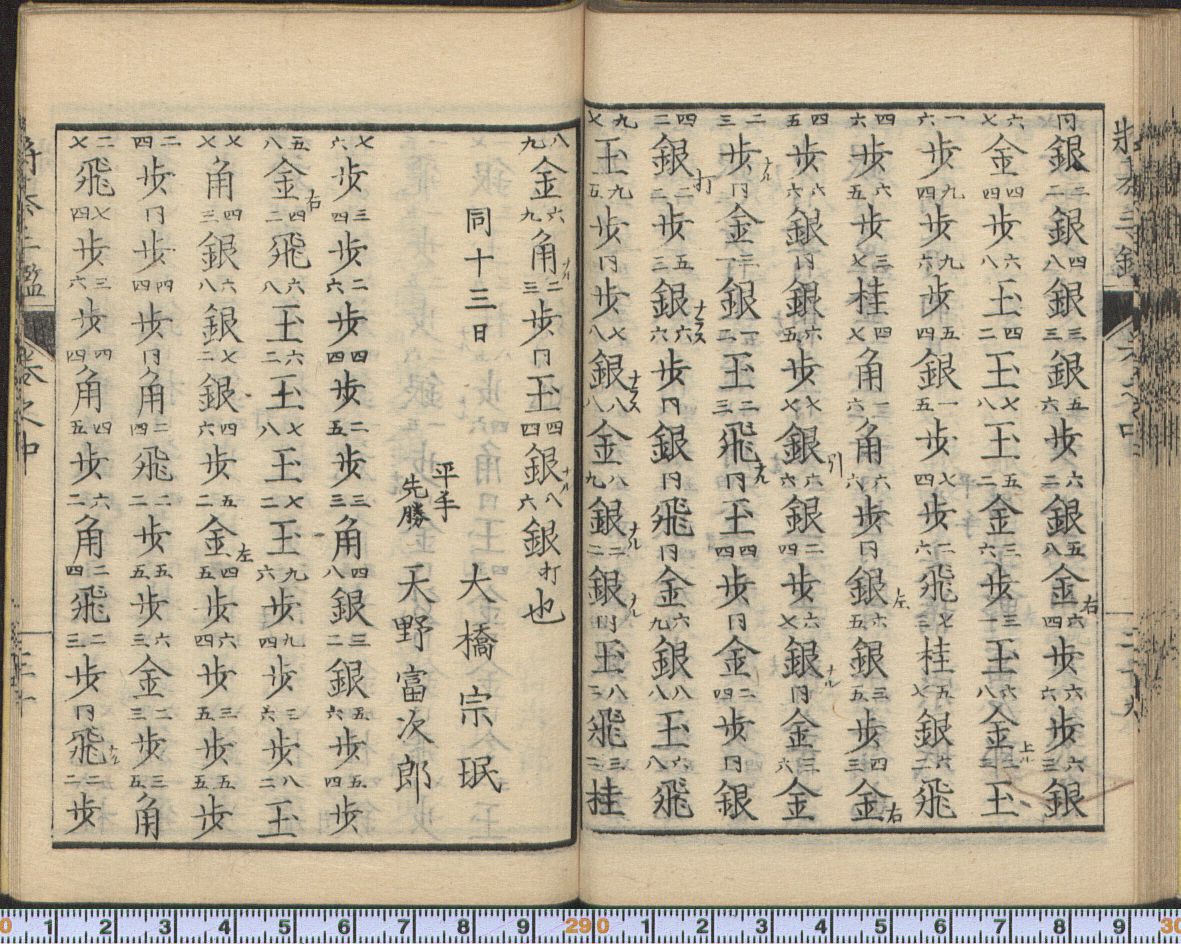 同銀二二銀四八銀三三銀五六歩六二銀五八金右六四歩六六歩六三銀
六七金四四歩六八玉四二玉七八玉五二金三六歩三一玉六八金上ル二二玉
一六歩九四歩九六歩五四銀一五歩七四歩二六飛七三桂五七銀六二飛
四六歩六五歩三七桂四七角一六角六六歩同銀左六五銀三五歩四三金右
四五歩六六銀同銀六五歩七七銀引六六銀二四歩六七銀ナル同金三六金
二三歩ナル同金三一銀一二玉二三飛ナル同玉四四歩同金二四歩同銀
四二銀打二二歩五三銀ナラス六六歩同銀同飛同金六九銀八八玉六八飛
九七玉九五歩同歩七八銀ナラス八八金八九銀ナル二二銀ナル同玉八二飛三二桂
八九金六九角ナル二三歩同玉四四銀ナル八六銀打也
同十三日
平手 大橋宗珉
先勝 天野富次郎
七六歩三四歩二六歩四四歩二五歩三三角四八銀三二銀五六歩五四歩
五八金右四二飛六八玉六二玉七八玉七二玉九六歩九四歩三六歩八二玉
七七角四三銀六八銀七二銀四六歩五二金左四五歩六四歩三五歩五五歩
二四歩同歩四四歩同角二四飛二二歩五五歩六三金二三歩三五角
二七飛七四歩三六歩四四角四五歩六二角二四飛二三歩同飛ナル二二歩
巻之中
三十